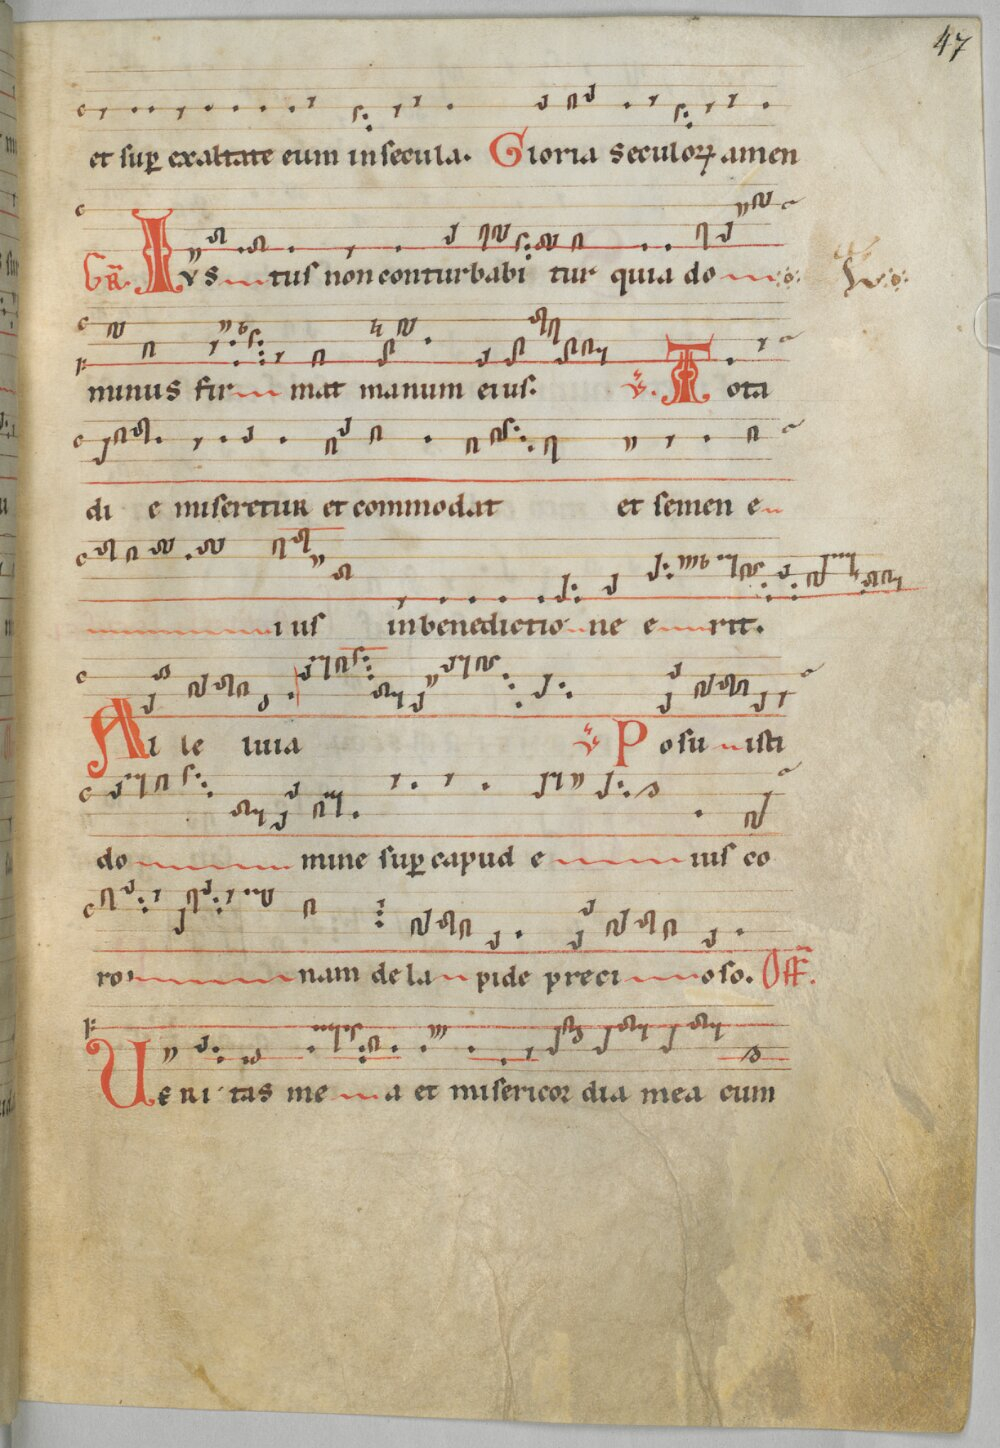 47
et sup exaltate eum in secula. Gloria seculoꝝ amen
Gr̄. IVS tus non conturbabi tur quia do
minus fir mat manum eius. ℣. Tota
di e miseretur et commodat et semen e
ius in benedictio ne e rit.
Al le luia ℣ Posu isti
do mine sup capud e ius co
ro nam de la pide preci oso. Off̄.
Veri tas me a et misericor dia mea cum